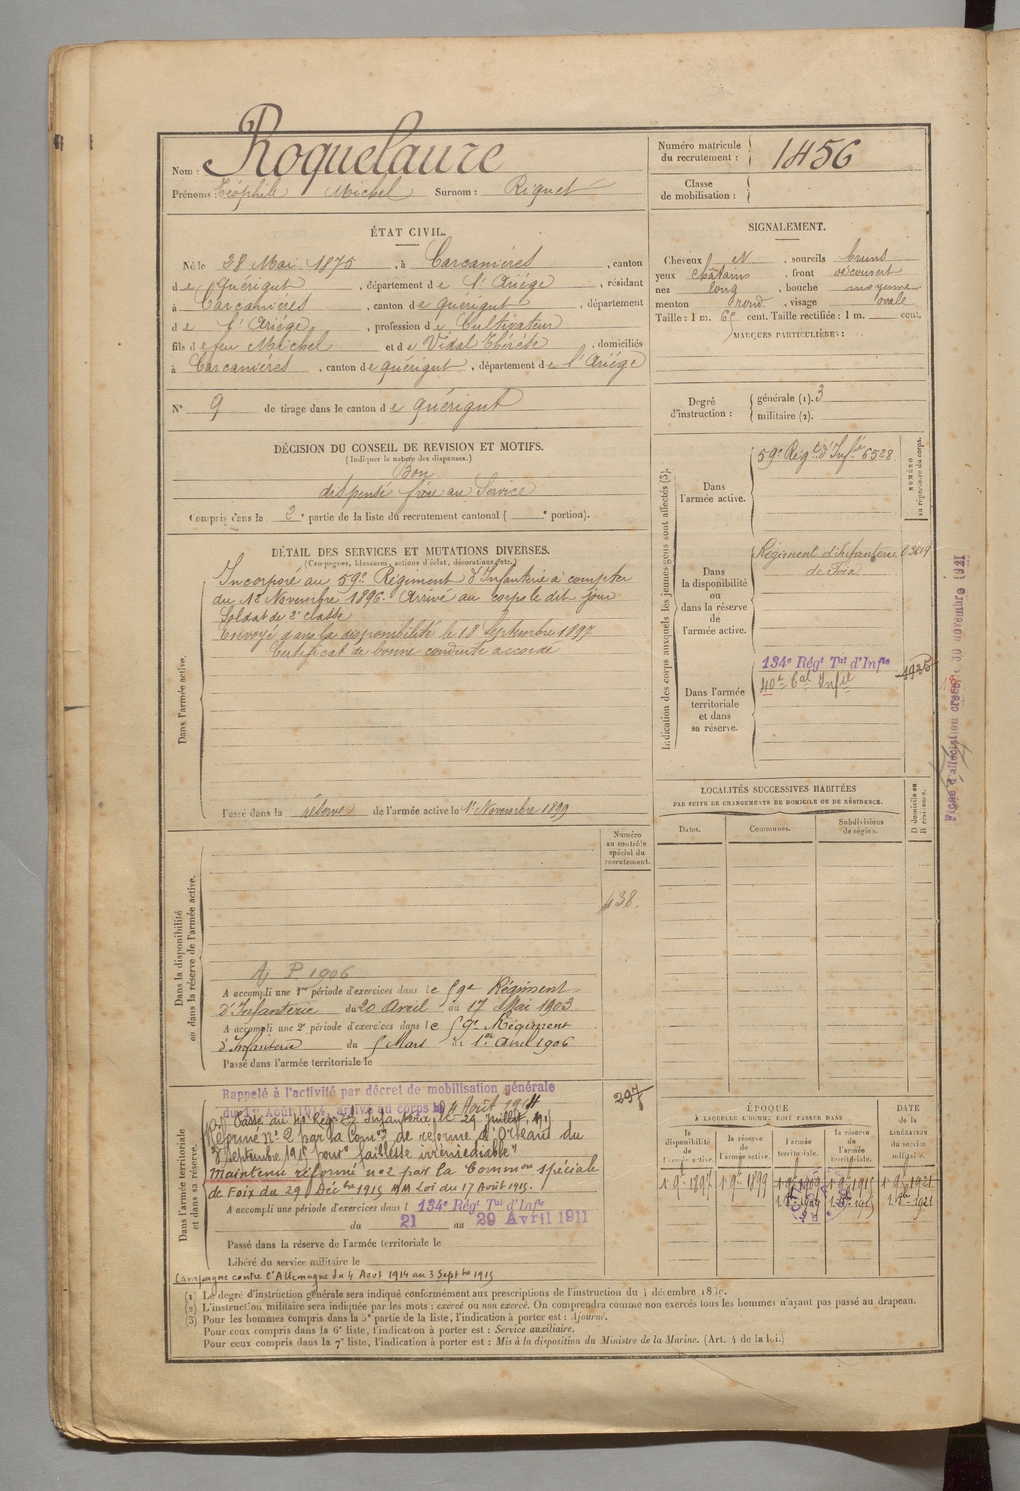 Nom : Roquelaure
Prénoms : Téophile Michel Surnom : Riquet
Numéro matricule du recrutement : 1456
Classe de mobilisation :
ÉTAT CIVIL.
Né le 28 Mai 1875, à Carcanières, canton
de Quérigut, département de l'Ariège, résidant
à Carcanières, canton de Quérigut, département
de l'Ariège, profession de Cultivateur
fils de feu Michel et de Vidal Thérèse, domiciliés
à Carcanières, canton de Quérigut, département de l'Ariège
N° 9 de tirage dans le canton de Quérigut
SIGNALEMENT.
Cheveux N, sourcils bruns
yeux châtains, front découvert
nez long, bouche moyenne
menton rond, visage ovale
Taille : 1 m. 65 cent. Taille rectifiée : 1 m. cent.
MARQUES PARTICULIÈRES :
Degré d'instruction : générale (1). 3
militaire (2).
DÉCISION DU CONSEIL DE REVISION ET MOTIFS.
(Indiquer la nature des dispenses.)
Bon
dispensé frère au Service
Compris dans la 2e partie de la liste du recrutement cantonal ( e portion).
DÉTAIL DES SERVICES ET MUTATIONS DIVERSES.
(Campagnes, blessures, actions d'éclat, décorations, etc.)
Dans l'armée active.
Incorporé au 59e Régiment d'Infanterie à compter
du 12 Novembre 1896. Arrivé au corps le dit jour
Soldat de 2e classe
Envoyé dans la disponibilité le 18 Septembre 1897
Certificat de bonne conduite accordé
Passé dans la réserve de l'armée active le 1er Novembre 1899
Indication des corps auxquels les jeunes gens sont affectés (3).
NUMÉRO au répertoire du corps.
Dans l'armée active.
59e Régt d'Infie 6528
Dans la disponibilité ou dans la réserve de l'armée active.
Régiment d'Infanterie
de Foix
Dans l'armée territoriale et dans sa réserve.
134e Régt Tal d'Infie
40e Cal Infie
Fiche d'affectation créée le 30 novembre 1921
LOCALITÉS SUCCESSIVES HABITÉES
PAR SUITE DE CHANGEMENTS DE DOMICILE OU DE RÉSIDENCE.
Dates. Communes. Subdivisions de région. D domicile ou R résidence.
Numéro au contrôle spécial du recrutement.
438.
Dans la disponibilité ou dans la réserve de l'armée active.
Aj P. 1906
A accompli une 1re période d'exercices dans le 59e Régiment
d'Infanterie du 20 Avril au 17 Mai 1903
A accompli une 2e période d'exercices dans le 59e Régiment
d'Infanterie du 5 Mars au 1er Avril 1906
Passé dans l'armée territoriale le
Dans l'armée territoriale et dans sa réserve.
297
Rappelé à l'activité par décret de mobilisation générale
du 1er Août 1914, arrivé au corps le 4 Août 1914
Passé au 40e Régt d'Infanterie le 29 juillet 1915
Réformé n° 2 par la Comon de réforme d'Orléans du
3 Septembre 1915 pour "faiblesse irrémédiable"
Maintenu réformé n°2 par la Common spéciale
de Foix du 29 Décbre 1915 Loi du 17 Août 1915.
A accompli une période d'exercices dans l 134e Régt Tal d'Infie
du 21 au 29 Avril 1911
Passé dans la réserve de l'armée territoriale le
Libéré du service militaire le
Campagne contre l'Allemagne du 4 Aout 1914 au 3 Septbre 1915
ÉPOQUE
À LAQUELLE L'HOMME DOIT PASSER DANS
la disponibilité de l'armée active. la réserve de l'armée active. l'armée territoriale. la réserve de l'armée territoriale. DATE de la LIBÉRATION du service militaire.
1 9bre 1897 1 9bre 1899 1 9bre 1909 1 9bre 1915 1 9bre 1921
(1) Le degré d'instruction générale sera indiqué conformément aux prescriptions de l'instruction du 4 décembre
(2) L'instruction militaire sera indiquée par les mots : exercé ou non exercé. On comprendra comme non exercés tous les hommes n'ayant pas passé au drapeau.
(3) Pour les hommes compris dans la 5e partie de la liste, l'indication à porter est : Ajourné.
Pour ceux compris dans la 6e liste, l'indication à porter est : Service auxiliaire.
Pour ceux compris dans la 7e liste, l'indication à porter est : Mis à la disposition du Ministre de la Marine. (Art. 4 de la loi.)